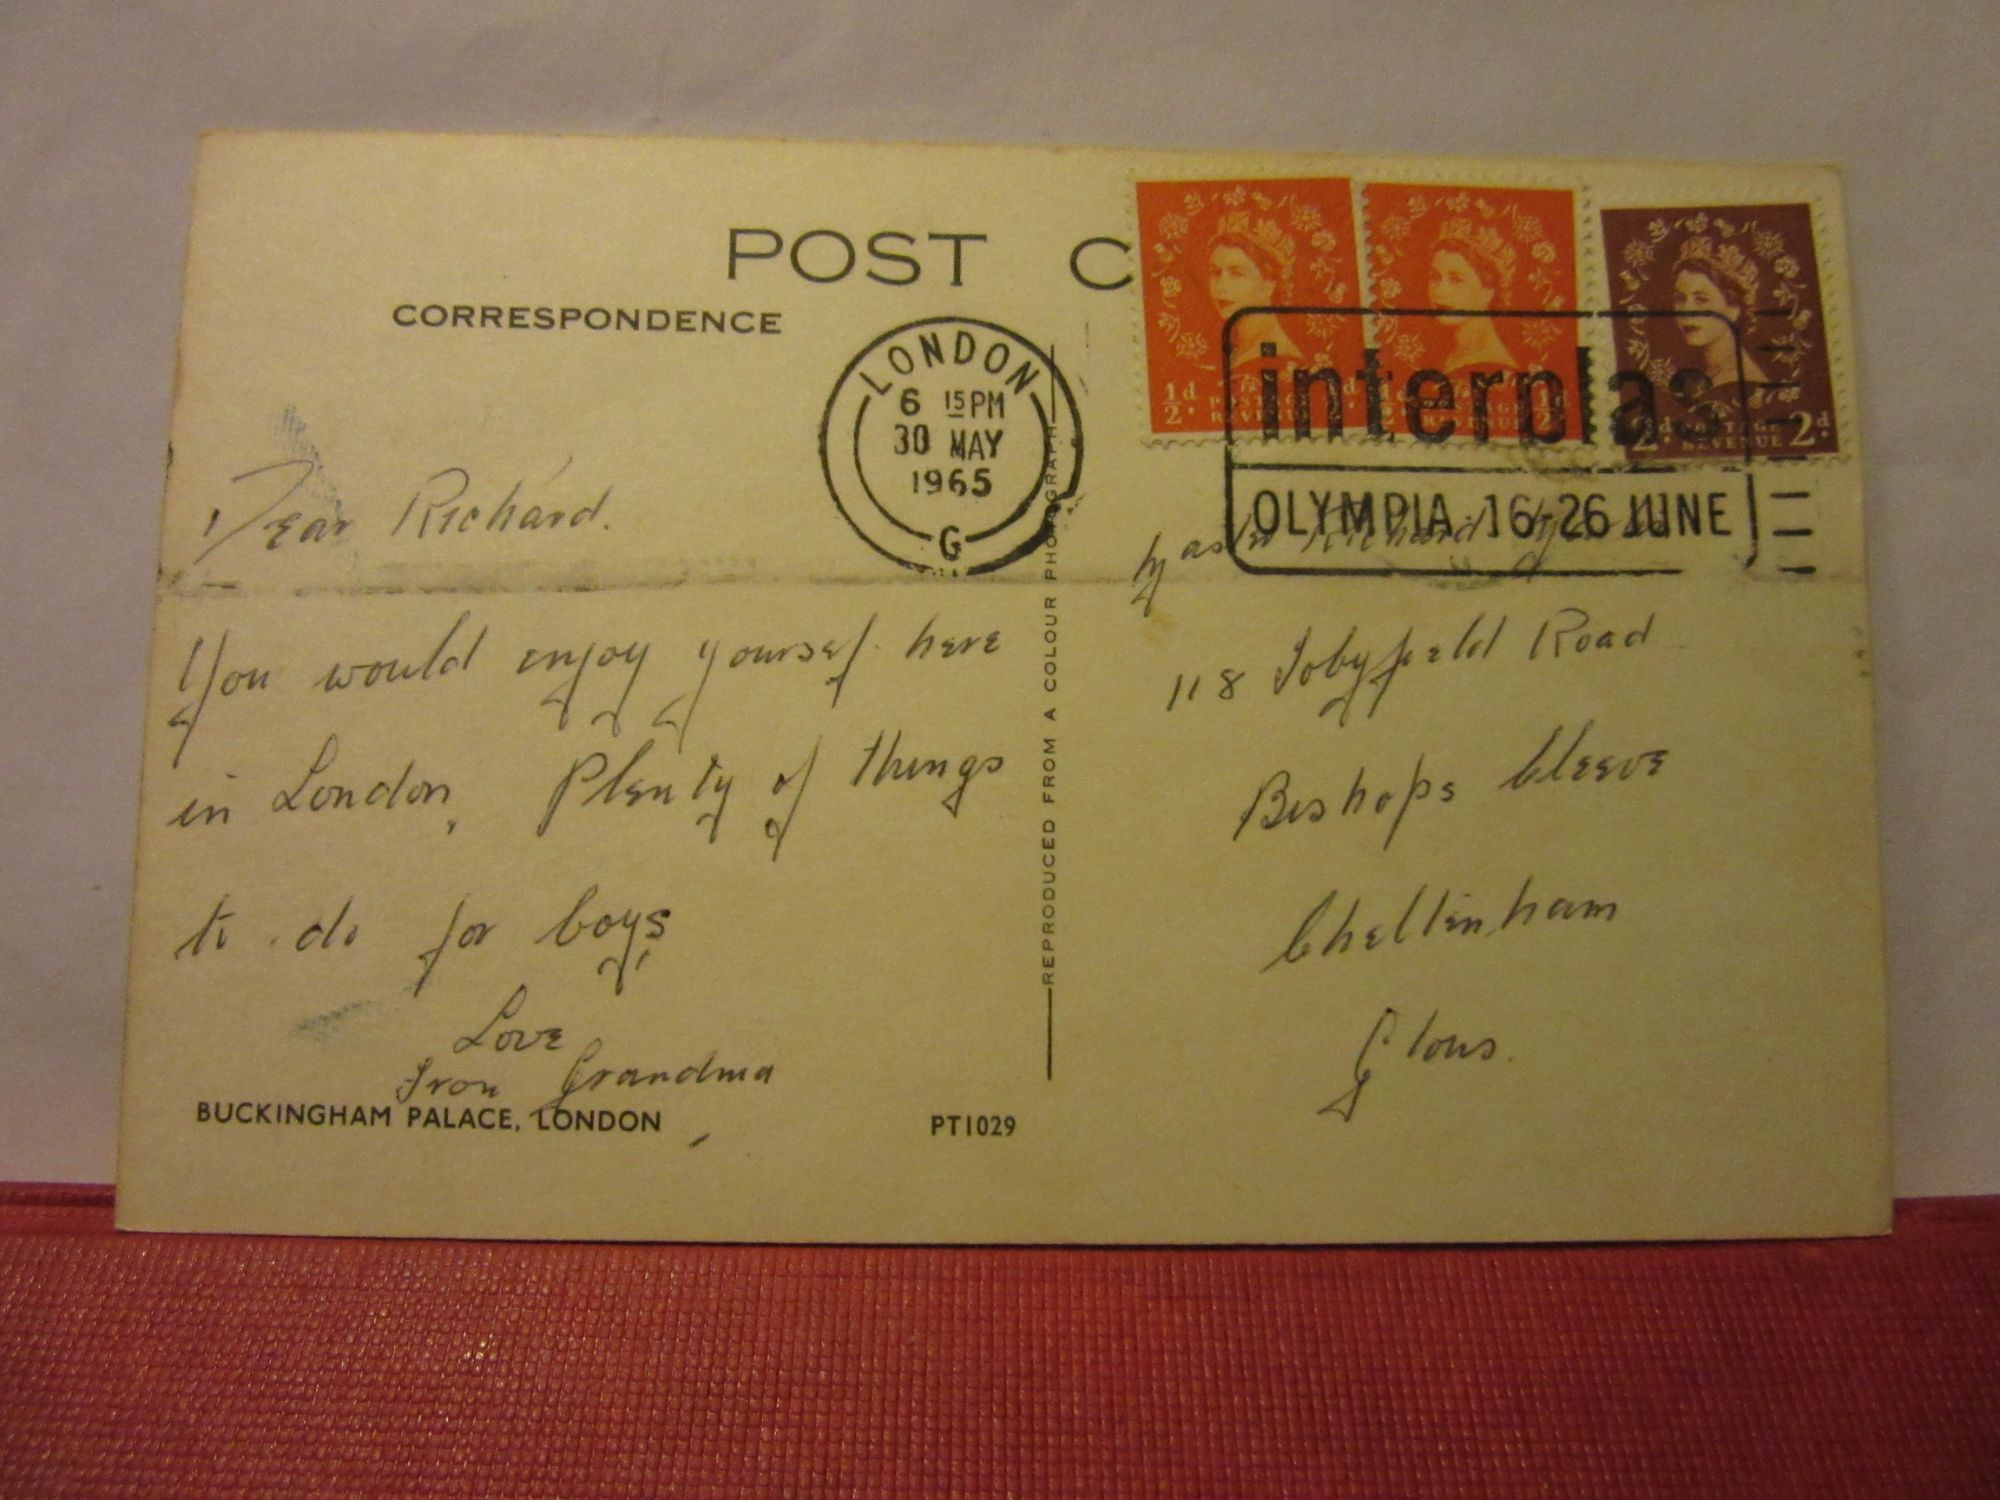 POST C
CORRESPONDENCE
LONDON
6 15 PM
30 MAY
1965
G
interplas
OLYMPIA 16-26 JUNE
½d POSTAGE REVENUE ½d
½d POSTAGE REVENUE ½d
2d POSTAGE REVENUE 2d
Dear Richard.
You would enjoy yourself here
in London, Plenty of things
to do for boys,
Love
From Grandma
BUCKINGHAM PALACE, LONDON
PT1029
REPRODUCED FROM A COLOUR PHOTOGRAPH
Master Richard
118 Tobyfield Road
Bishops Cleeve
Cheltenham
Glous.